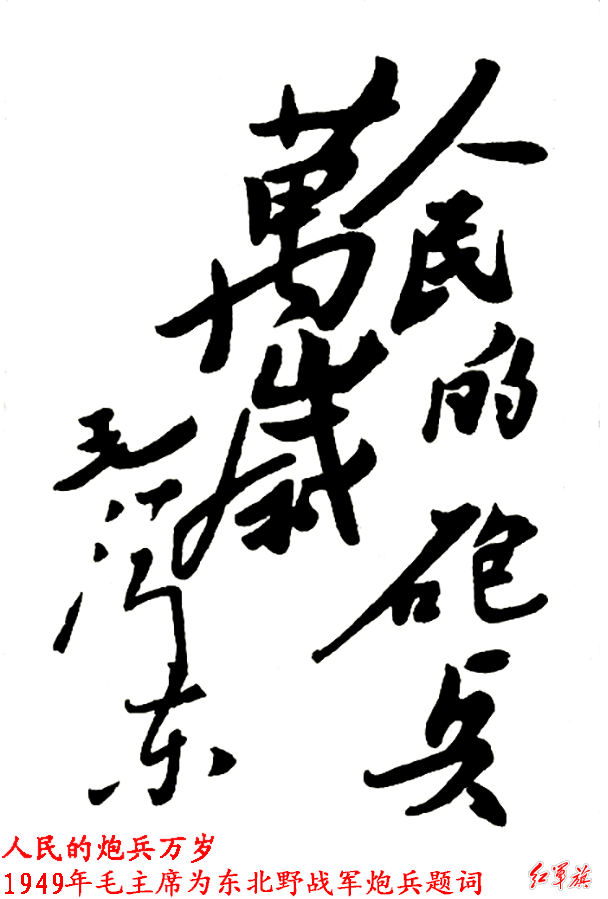 人民的砲兵
萬歲
毛泽东
人民的炮兵万岁
1949年毛主席为东北野战军炮兵题词
红军旗